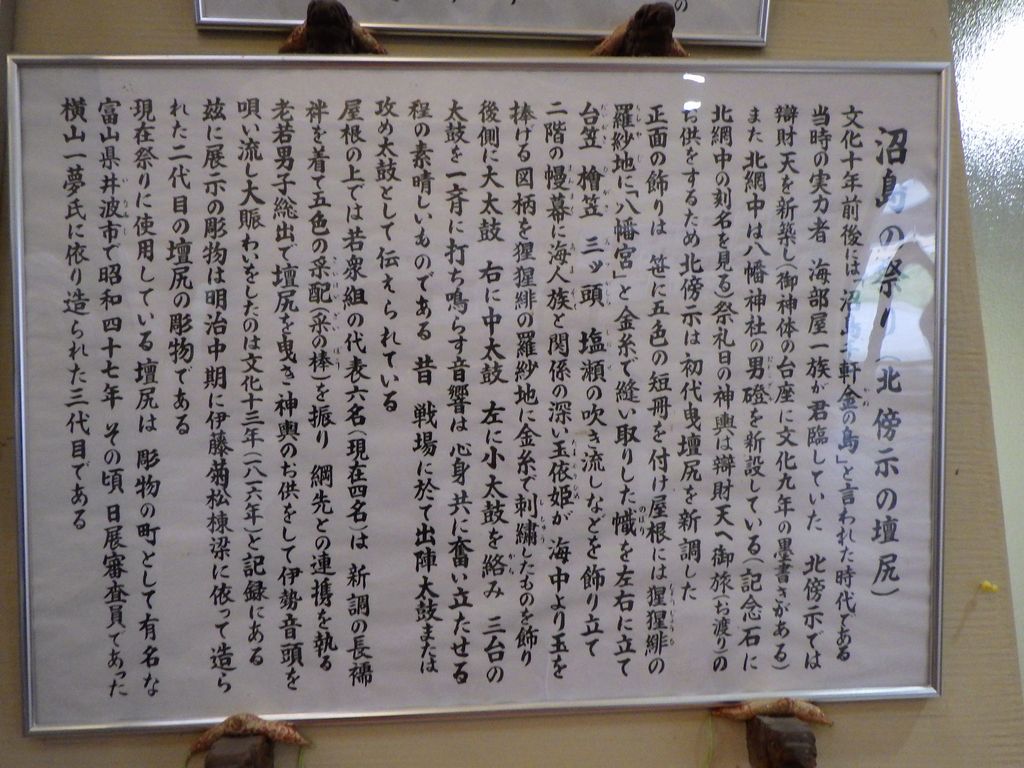 沼島の祭り(北傍示の壇尻)
文化十年前後には「沼島千軒金の島」と言われた時代である
当時の実力者 海部屋一族が君臨していた 北傍示では
辯財天を新築し(御神体の台座に文化九年の墨書きがある)
また北網中は八幡神社の男磴を新設している(記念石に
北網中の刻名を見る)祭礼日の神輿は辯財天へ御旅(お渡り)の
お供をするため北傍示は初代曳壇尻を新調した
正面の飾りは 笹に五色の短冊を付け屋根には猩猩緋の
羅紗地に「八幡宮」と金糸で縫い取りした幟を左右に立て
台笠 檜笠 三ッ頭 塩瀬の吹き流しなどを飾り立て
二階の幔幕に海人族と関係の深い玉依姫が 海中より玉を
捧げる図柄を猩猩緋の羅紗地に金糸で刺繍したものを飾り
後側に大太鼓 右に中太鼓 左に小太鼓を絡み 三台の
太鼓を一斉に打ち鳴らす音響は心身共に奮い立たせる
程の素晴しいものである 昔 戦場に於て出陣太鼓または
攻め太鼓として伝えられている
屋根の上では若衆組の代表六名(現在四名)は 新調の長襦
袢を着て五色の采配(采の棒)を振り 綱先との連携を執る
老若男子総出で壇尻を曳き神輿のお供をして伊勢音頭を
唄い流し大賑わいをしたのは文化十三年(一八一六年)と記録にある
玆に展示の彫物は明治中期に伊藤菊松棟梁に依って造ら
れた二代目の壇尻の彫物である
現在祭りに使用している壇尻は 彫物の町として有名な
富山県井波市で昭和四十七年 その頃 日展審査員であった
横山一夢氏に依り造られた三代目である